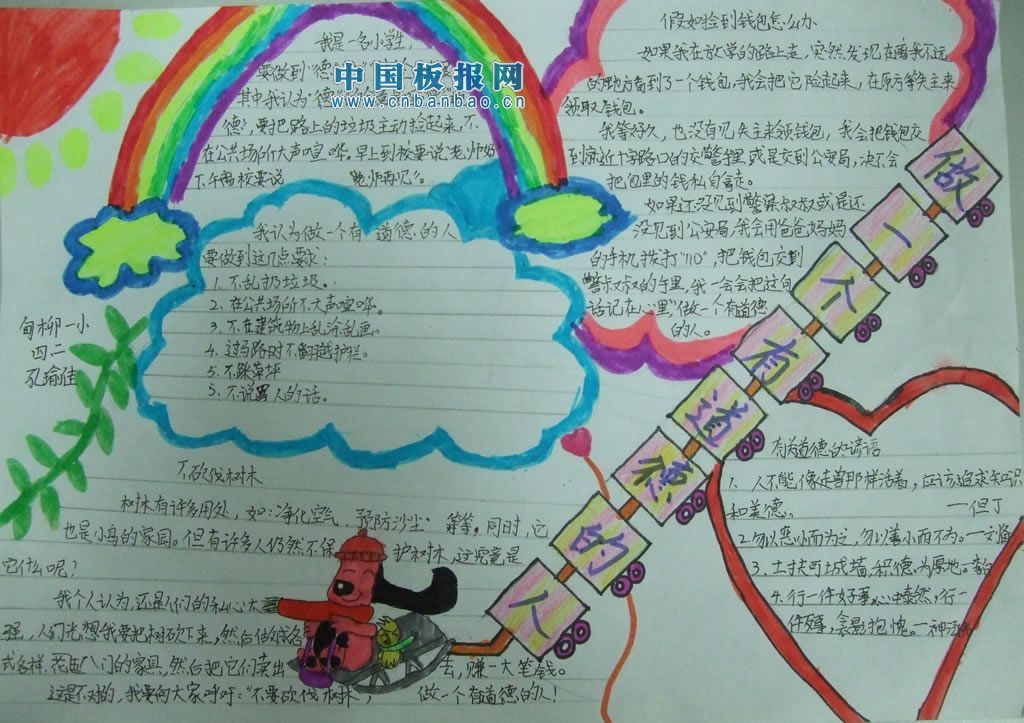 我是一名小学生,
要做到"德
中国板报网
www.cnbanbao.cn
其中我认为"德
德",要把路上的垃圾主动捡起来,不
在公共场所大声喧哗。早上到校要说"老师好"
下午离校要说 "老师再见"。
我认为做一个有道德的人
要做到这几点要求:
1. 不乱扔垃圾。
2. 在公共场所不大声喧哗。
3. 不在建筑物上乱涂乱画。
4. 过马路时不翻越护栏。
5. 不踩草坪
5. 不说骂人的话。
甸柳一小
四二
孔瑜佳
假如捡到钱包怎么办
如果我在放学的路上走,突然发现在离我不远
的地方看到了一个钱包,我会把它捡起来,在原方等失主来
领取钱包。
我等好久,也没有见失主来领钱包,我会把钱包交
到就近十字路口的交警手里或是交到公安局,决不会
把包里的钱私自拿走。
如果还没见到警察叔叔或是还
没见到公安局,我会用爸爸妈妈
的手机拨打"110",把钱包交到
警察叔叔的手里,我一会会把这句
话记在心里"做一个有道德
的人。
做一个有道德的人
有关道德的谚语
1. 人不能像走兽那样活着,应该追求知识
和美德。 —但丁
2. 勿以恶小而为之,勿以善小而不为。
3. 土扶可上成墙,积德为厚地。李白
4. 行一件好事心中泰然,行一
件歹事,衾影抱愧。—神涵光
不砍伐树木
树木有许多用处,如:净化空气、预防沙尘 等等。同时,它
也是小鸟的家园。但有许多人仍然不保 护树木,这究竟是
它什么呢?
我个人认为,还是人们的私心太
强,人们光想我要把树砍下来,然后做成各
式各样、花匝八门的家具,然后把它们卖出 去,赚一大笔钱。
这是不对的,我要向大家呼吁:"不要砍伐树木, 做一个有道德的人!